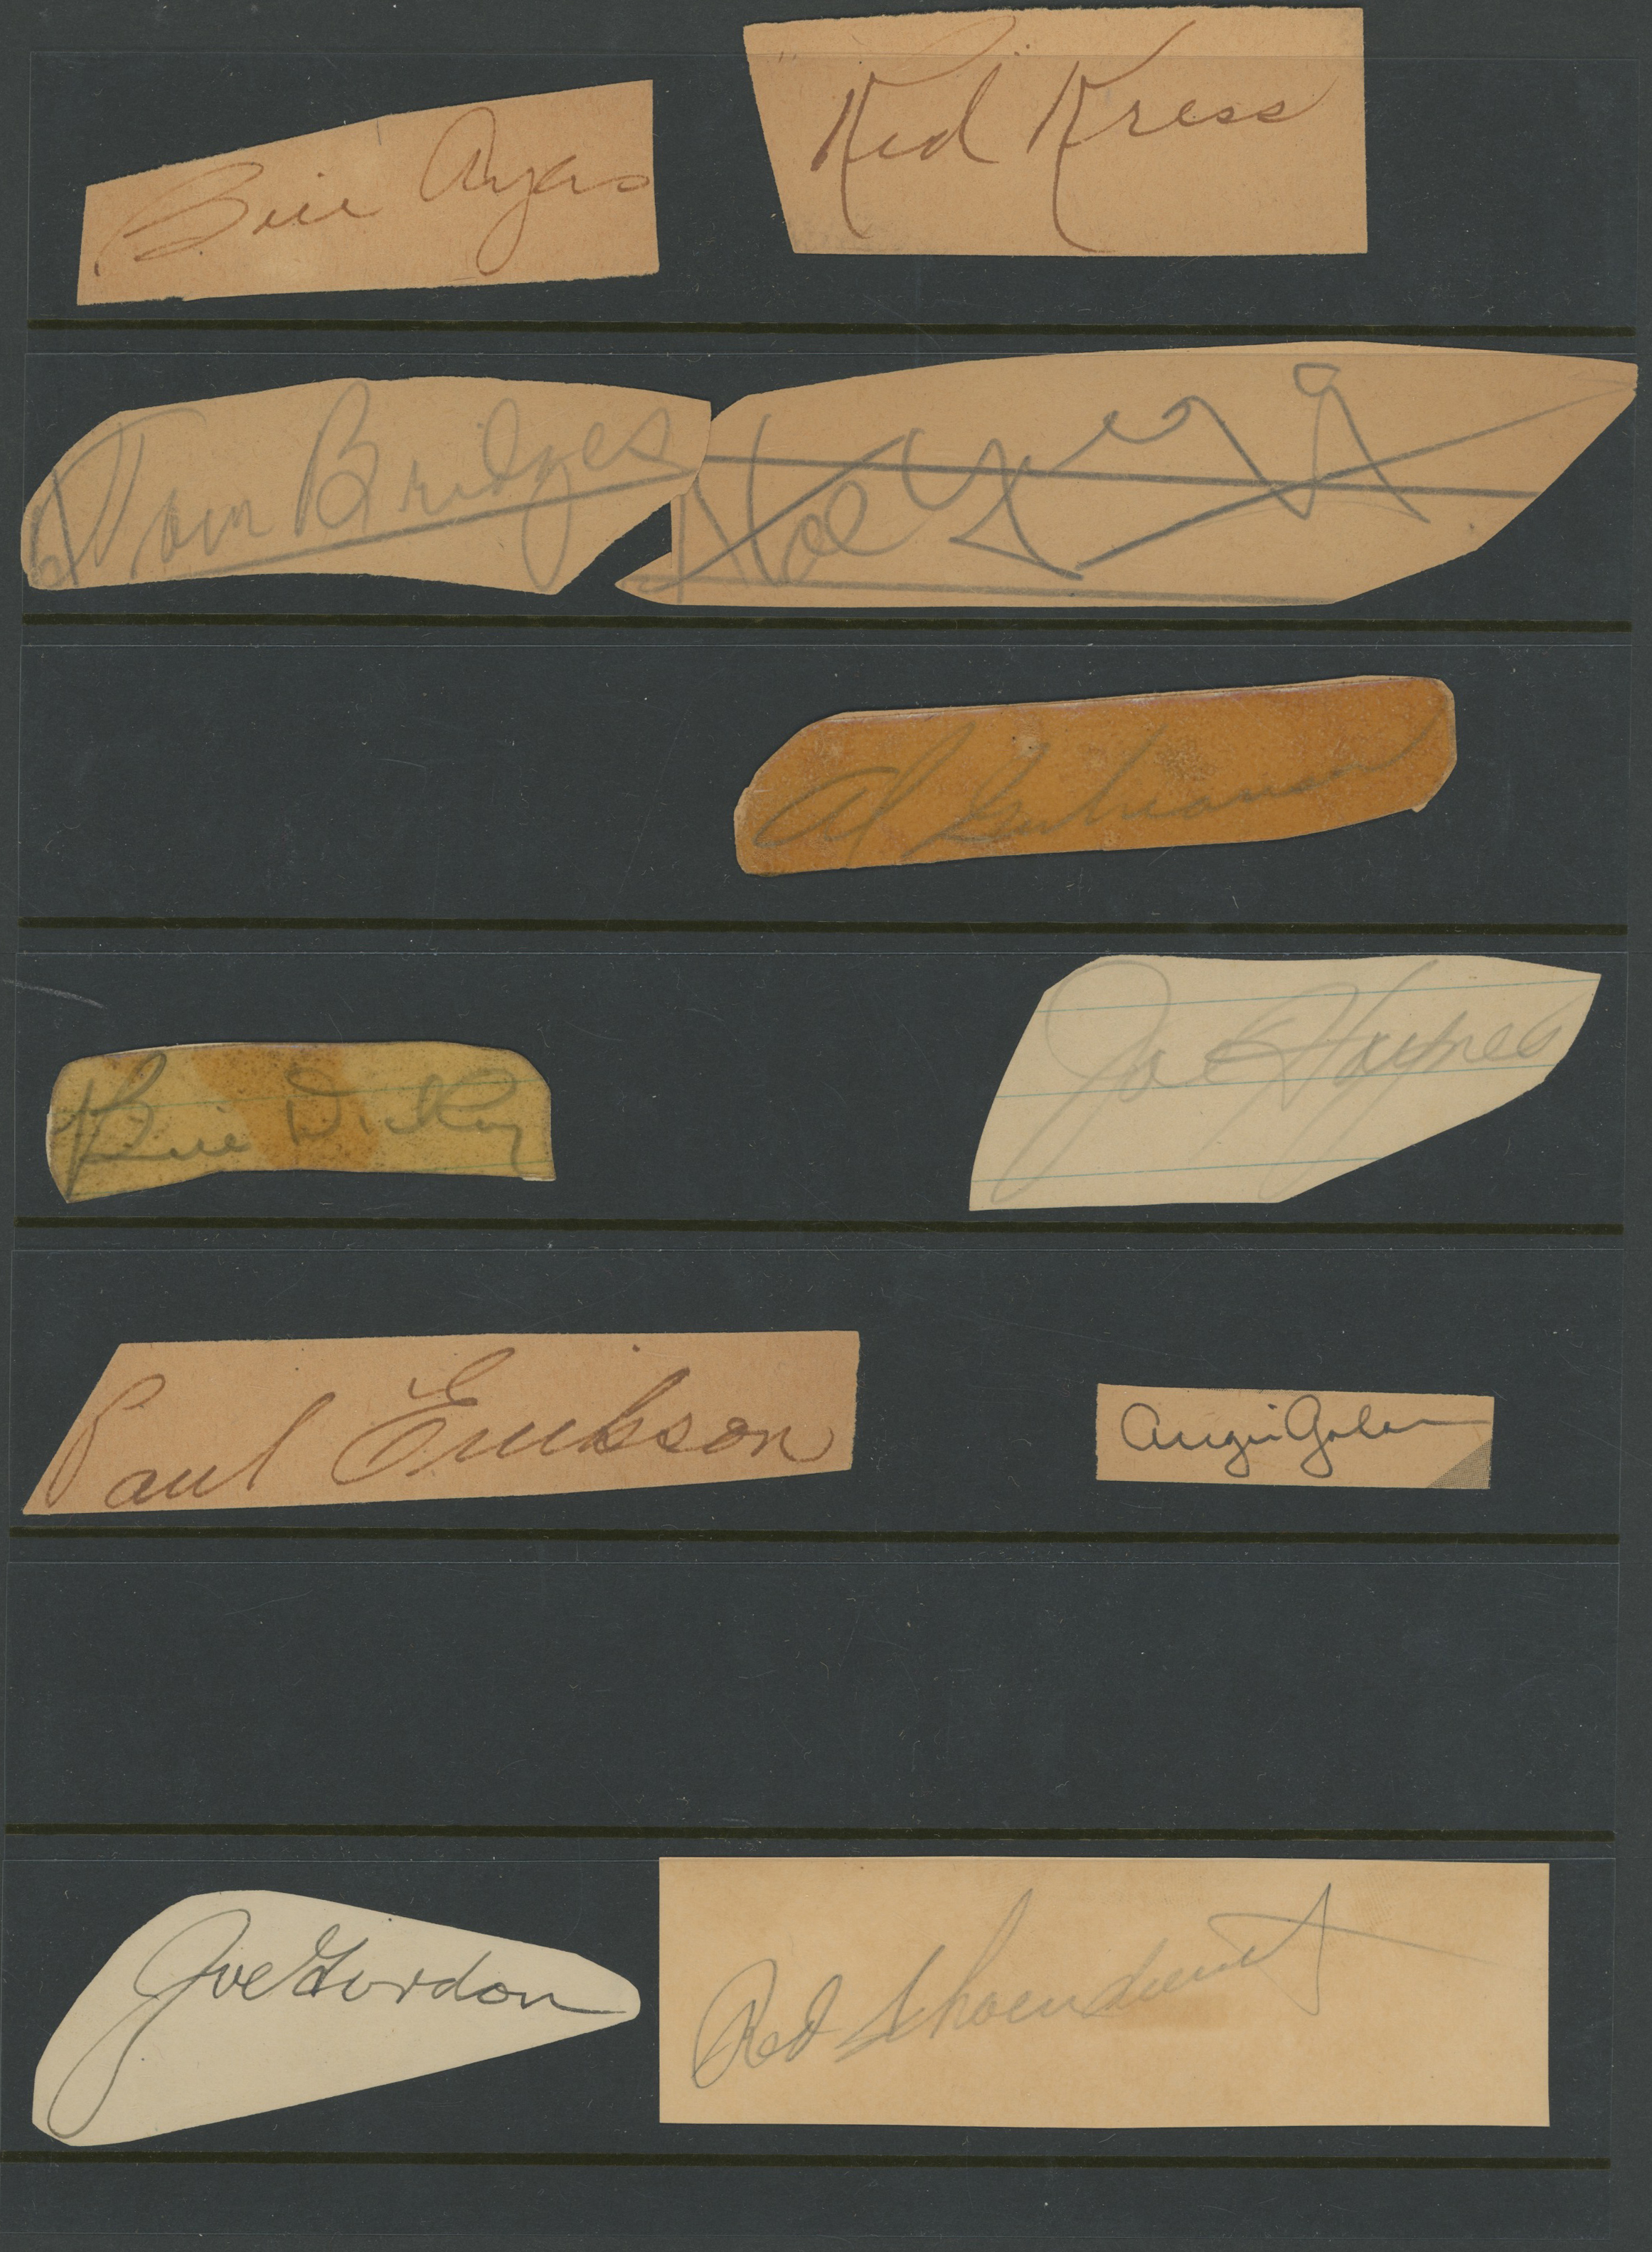 Bill Ayers
Red Kress
Tom Bridges
Al
Bill Dickey
Joe Haynes
Paul Erickson
Augie Galan
Joe Gordon
Red Schoendienst